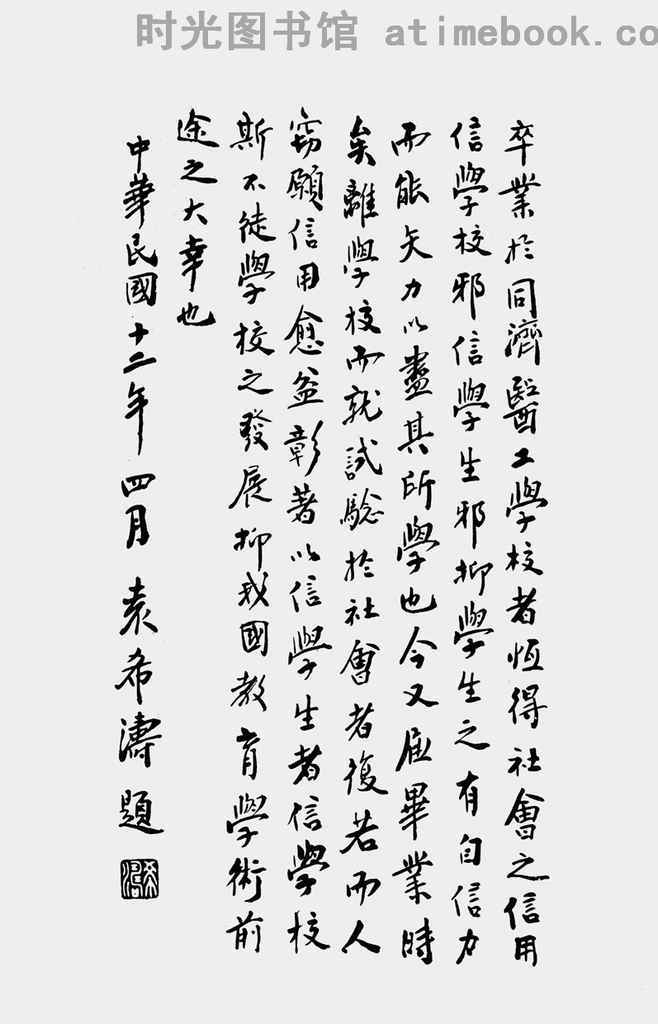 时光图书馆 atimebook.co
卒業於同濟醫工學校者恆得社會之信用
信學校邪信學生邪抑學生之有自信力
而能矢力以盡其所學也今又屆畢業時
矣離學校而就試驗於社會者復若而人
竊願信用愈益彰著以信學生者信學校
斯不徒學校之發展抑我國教育學術前
途之大幸也
中華民國十二年四月袁希濤題